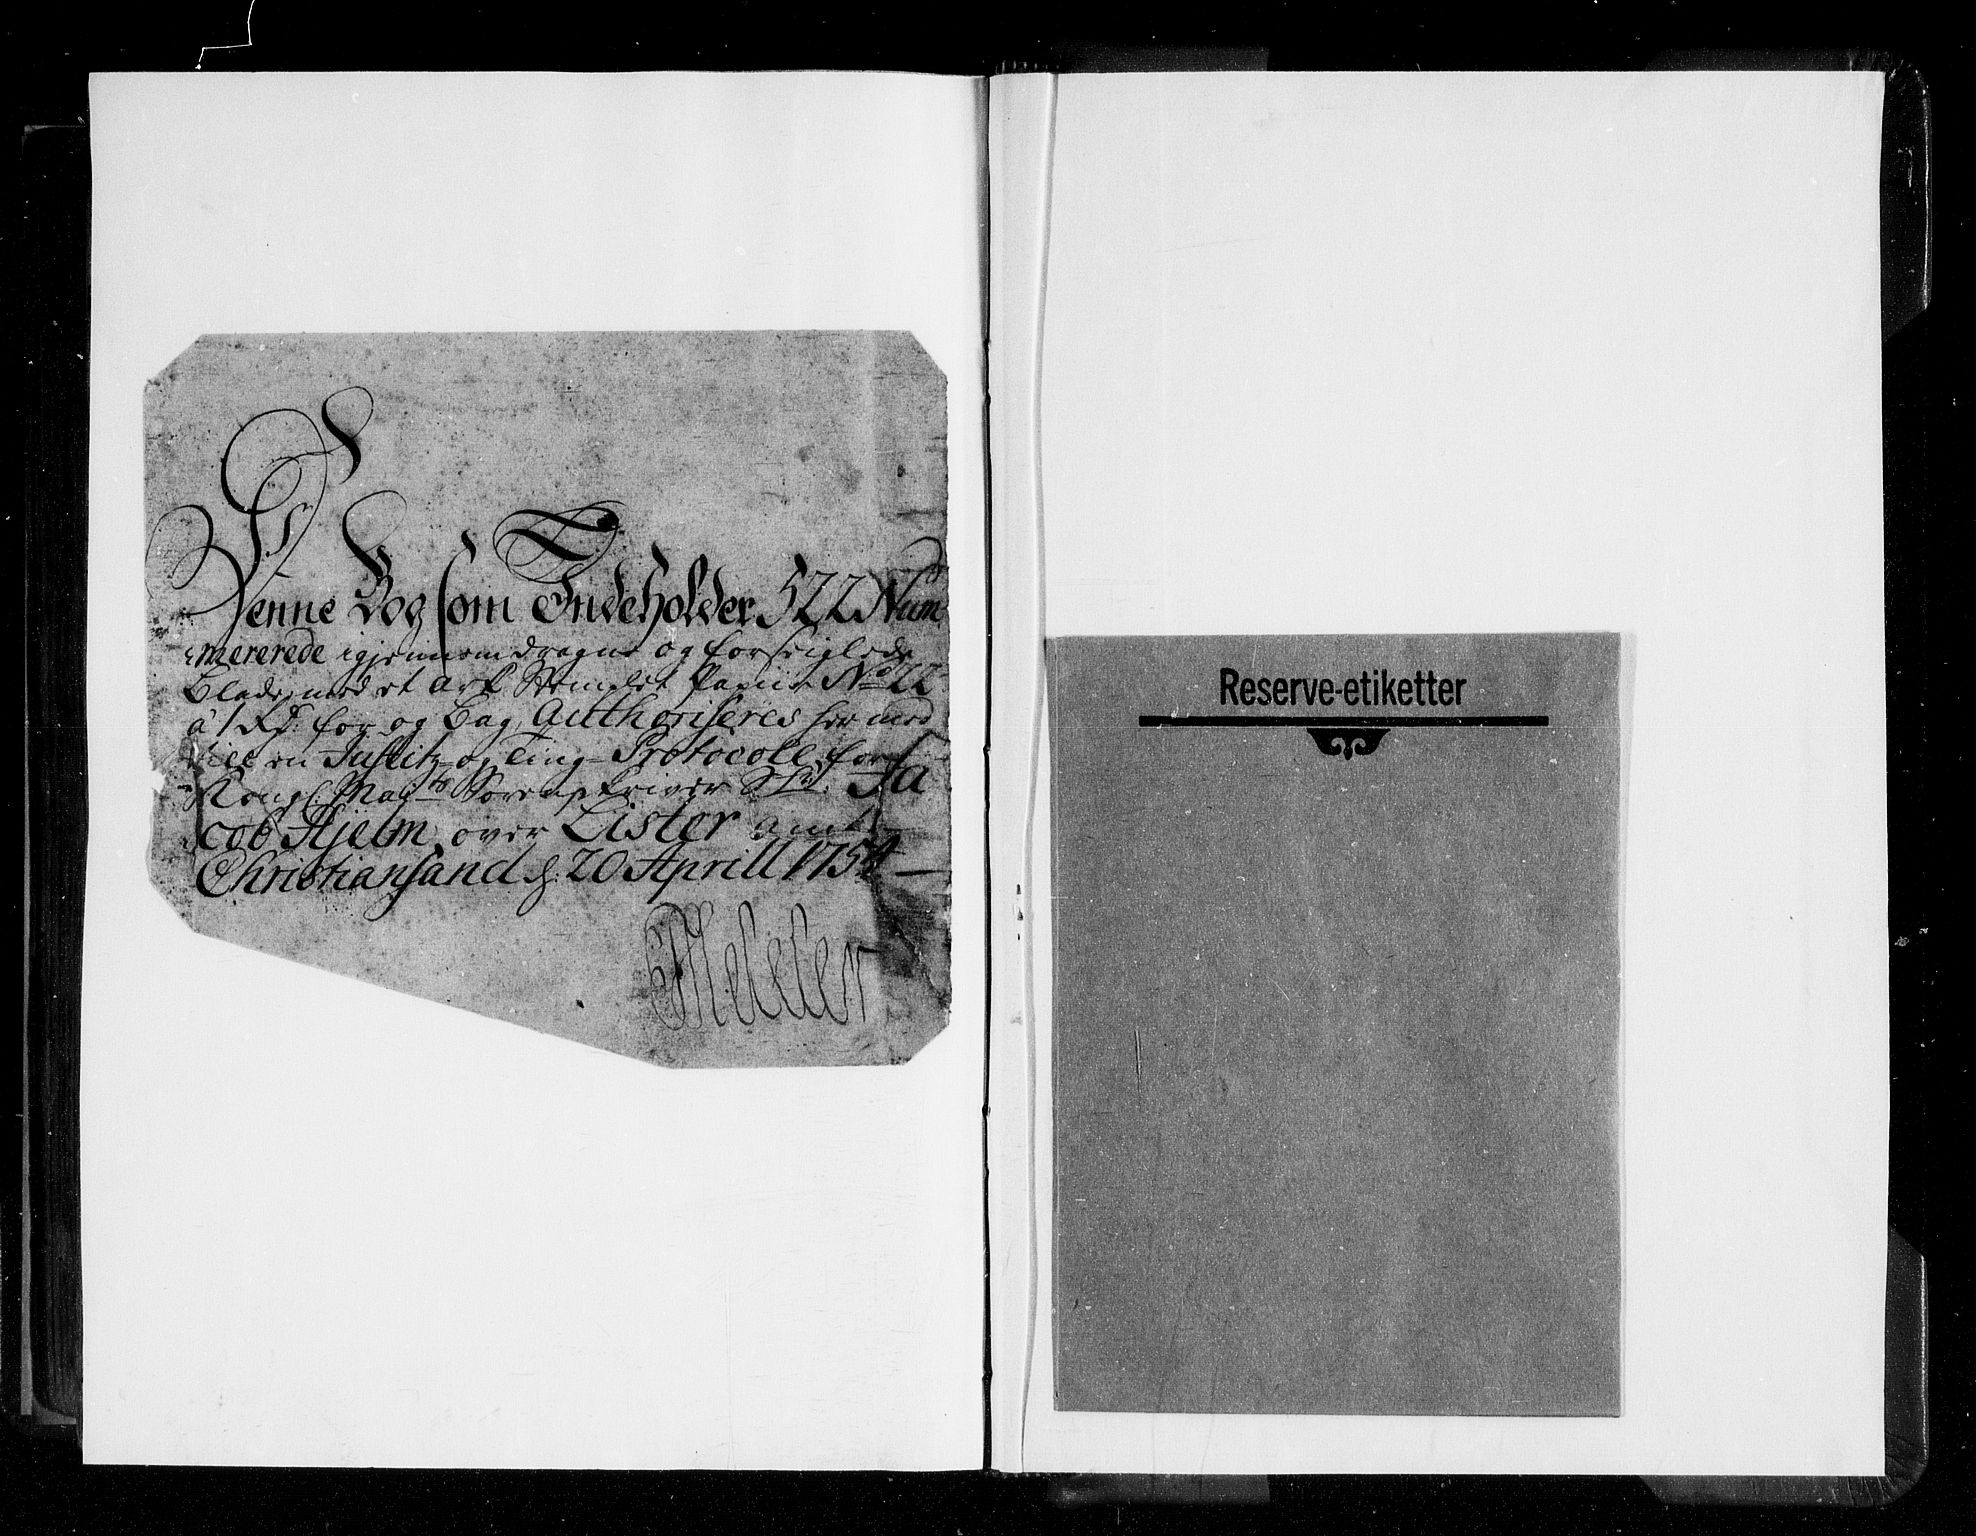 Denne Bog som Indeholder 522 Num
mererede igjennemdragne og forseiglede
Blade, med et Ark Stemplet Papiir No 22
à 1 Rd: for og bag, Authoriseres her med
till en Justitz og Ting-Protocoll, for
Kongl: Mayts Sorenskriver Sr. Ja
cob Hjelm, over Lister amt
Christiansand d: 20 Aprill 1754
Reserve-etiketter